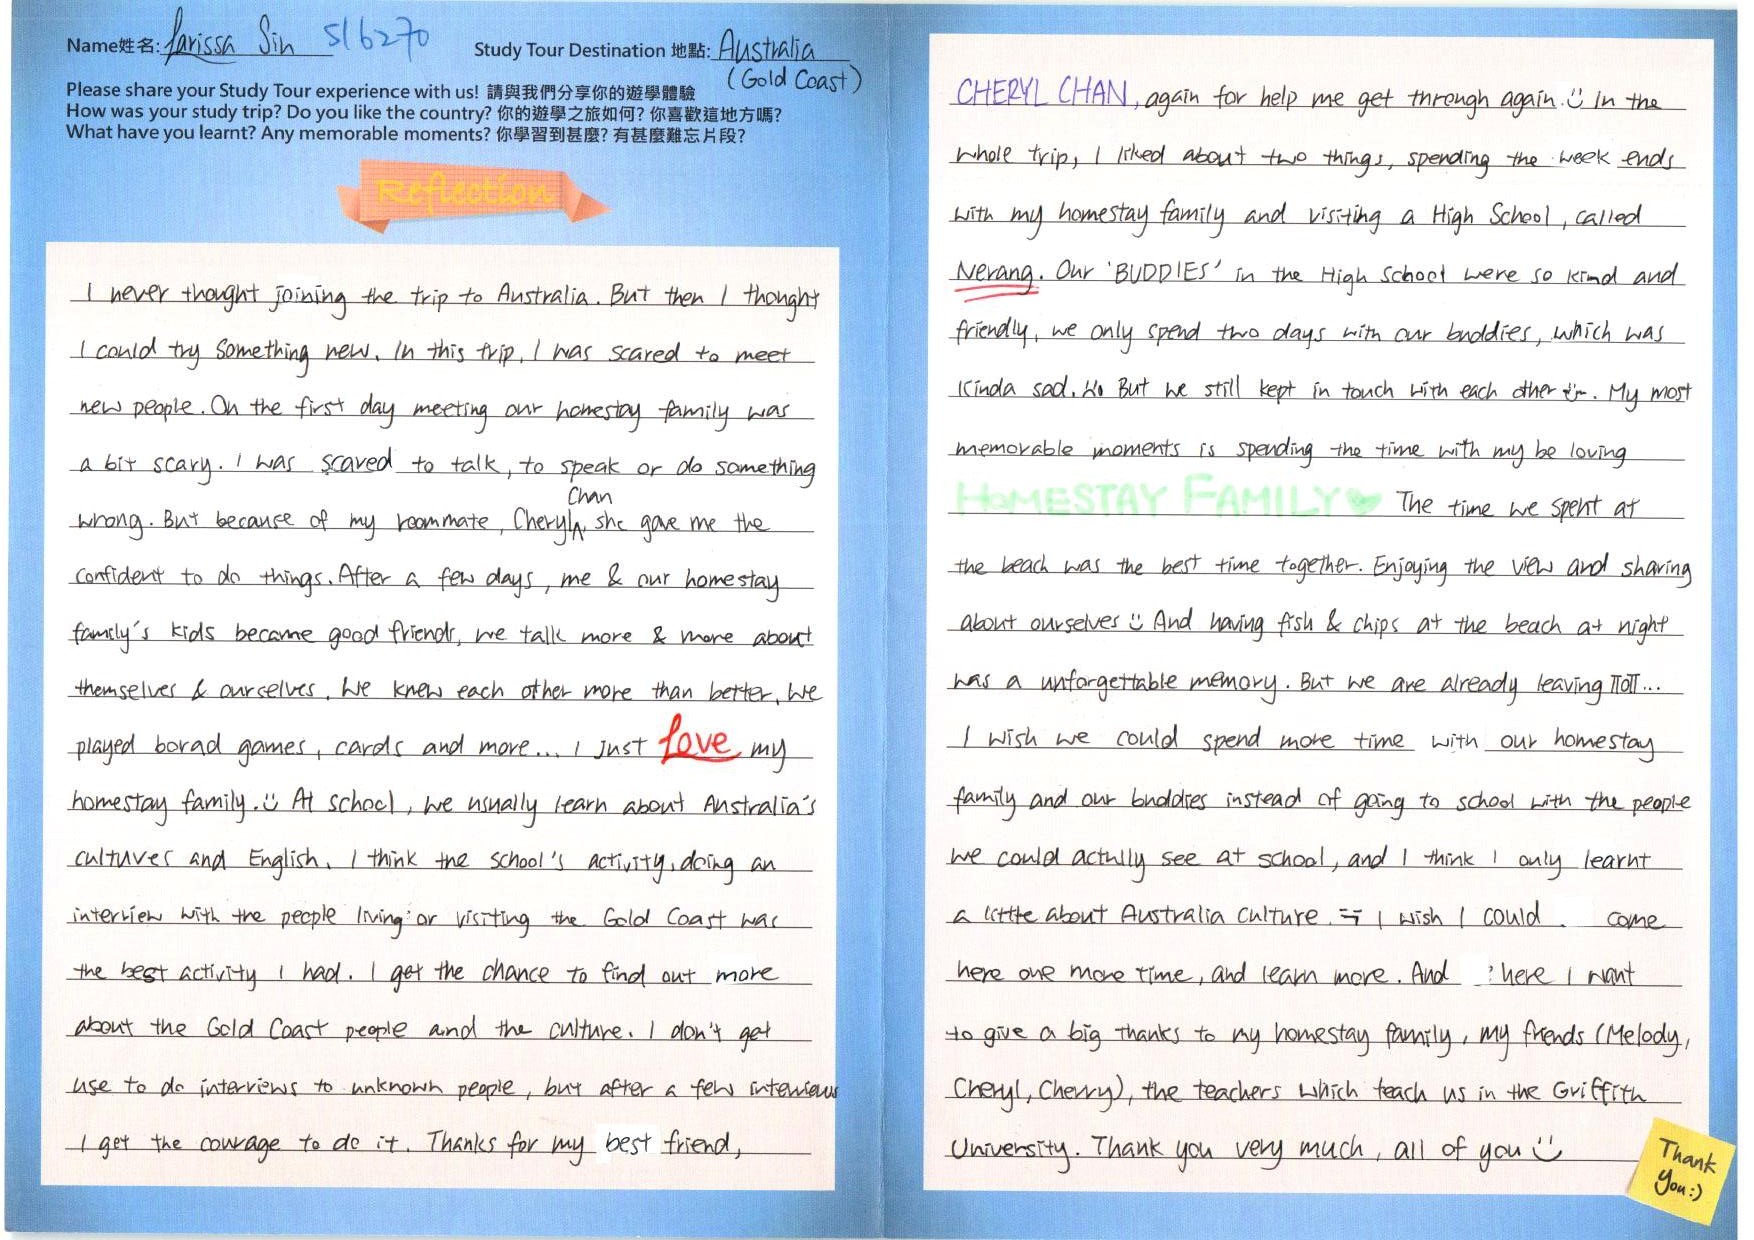 Name姓名: Larissa Sin 516270
Study Tour Destination 地點: Australia
(Gold Coast)
Please share your Study Tour experience with us! 請與我們分享你的遊學體驗
How was your study trip? Do you like the country? 你的遊學之旅如何? 你喜歡這地方嗎?
What have you learnt? Any memorable moments? 你學習到甚麼? 有甚麼難忘片段?
Reflection
I never thought joining the trip to Australia. But then I thought
I could try something new. In this trip, I was scared to meet
new people. On the first day meeting our homestay family was
a bit scary. I was scared to talk, to speak or do something
Chan
wrong. But because of my roommate, Cheryl, she gave me the
confident to do things. After a few days, me & our homestay
family's kids became good friends, we talk more & more about
themselves & ourselves. We knew each other more than better. We
played borad games, cards and more... I just Love my
homestay family. :) At school, we usually learn about Australia's
cultures and English. I think the school's activity, doing an
interview with the people living or visiting the Gold Coast was
the best activity I had. I get the chance to find out more
about the Gold Coast people and the culture. I don't get
use to do interviews to unknown people, but after a few interviews
I get the courage to do it. Thanks for my best friend,
CHERYL CHAN, again for help me get through again. :) In the
whole trip, I liked about two things, spending the week ends
with my homestay family and visiting a High School, called
Nerang. Our 'BUDDIES' in the High School were so kind and
friendly, we only spend two days with our buddies, which was
kinda sad. But we still kept in touch with each other :). My most
memorable moments is spending the time with my be loving
HOMESTAY FAMILY♥ The time we spent at
the beach was the best time together. Enjoying the view and sharing
about ourselves :) And having fish & chips at the beach at night
was a unforgettable memory. But we are already leaving TToTT...
I wish we could spend more time with our homestay
family and our buddies instead of going to school with the people
we could actully see at school, and I think I only learnt
a little about Australia culture. I wish I could come
here one more time, and learn more. And here I want
to give a big thanks to my homestay family, my friends (Melody,
Cheryl, Cherry), the teachers which teach us in the Griffith
University. Thank you very much, all of you :)
Thank
you:)